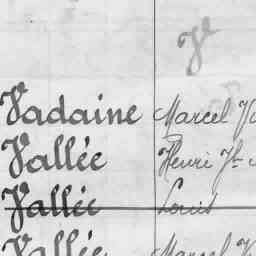 Vadaine Marcel
Vallée Henri Jh
Vallée Louis
Vallée Marcel